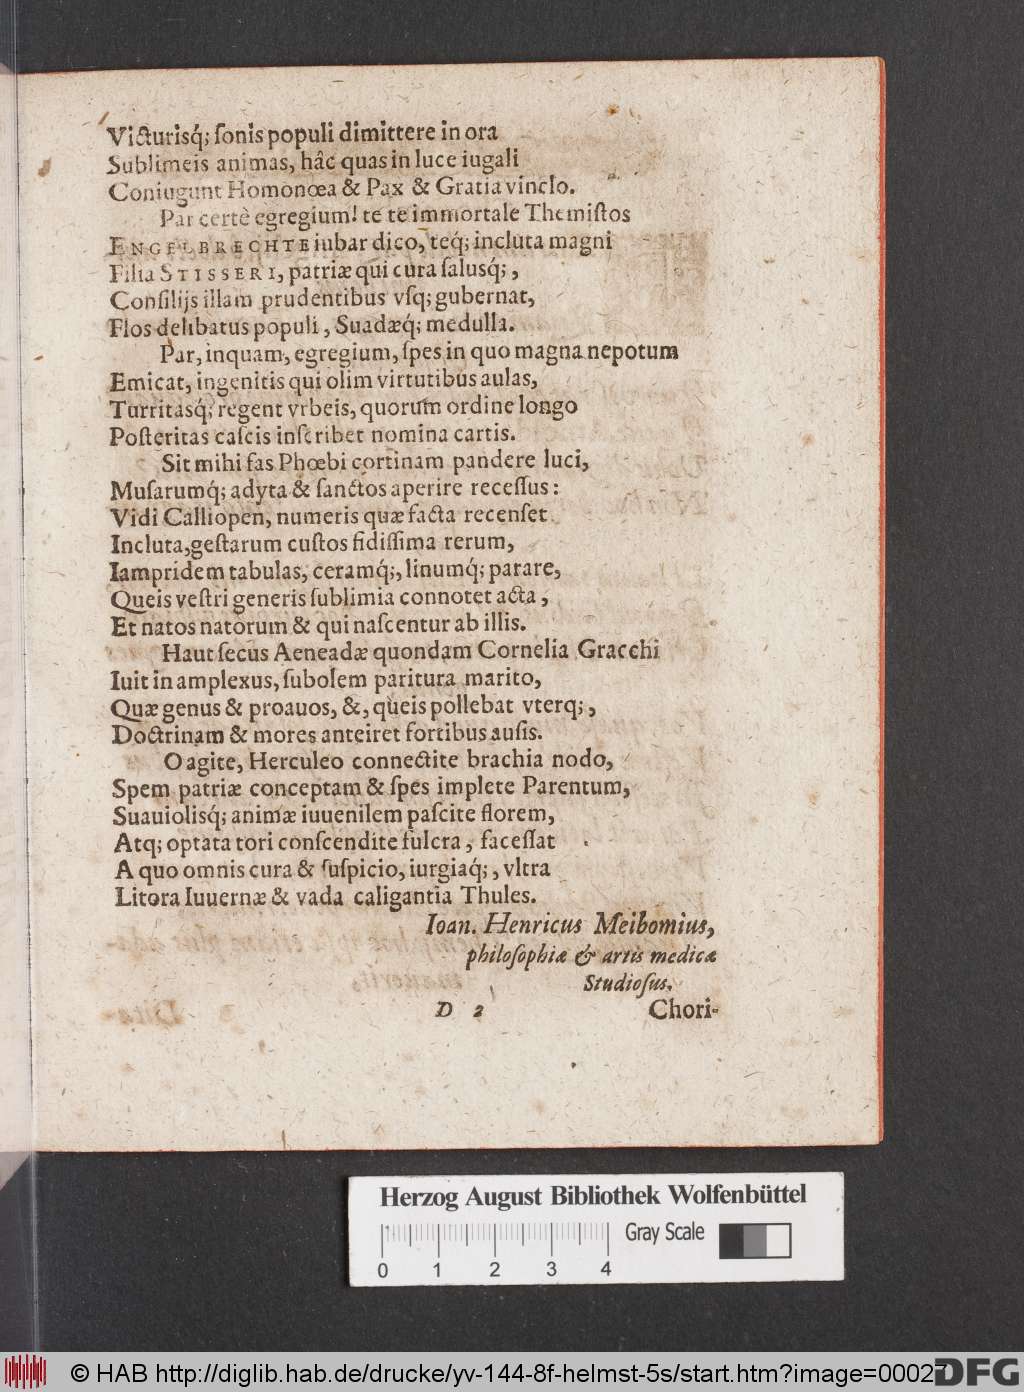 Victurisq́; ſonis populi dimittere in ora
Sublimeis animas, hâc quas in luce iugali
Coniugunt Homonœa & Pax & Gratia vinclo.
Par certè egregium! te te immortale Themiſtos
ENGELBRECHTE iubar dico, teq́; incluta magni
Filia STISSERI, patriæ qui cura ſalusq́; ,
Conſilijs illam prudentibus vſq; gubernat,
Flos delibatus populi, Suadæq́; medulla.
Par, inquam, egregium, ſpes in quo magna nepotum
Emicat, ingenitis qui olim virtutibus aulas,
Turritasq́; regent vrbeis, quorum ordine longo
Poſteritas caſcis inſcribet nomina cartis.
Sit mihi fas Phœbi cortinam pandere luci,
Muſarumq́; adyta & ſanctos aperire receſſus:
Vidi Calliopen, numeris quæ facta recenſet
Incluta, geſtarum cuſtos fidiſſima rerum,
Iampridem tabulas, ceramq́;, linumq́; parare,
Queis veſtri generis ſublimia connotet acta,
Et natos natorum & qui naſcentur ab illis.
Haut ſecus Aeneadæ quondam Cornelia Gracchi
Iuit in amplexus, ſubolem paritura marito,
Quæ genus & proauos, &, queis pollebat vterq; ,
Doctrinam & mores anteiret fortibus auſis.
O agite, Herculeo connectite brachia nodo,
Spem patriæ conceptam & ſpes implete Parentum,
Suauiolisq́; animæ iuuenilem paſcite florem,
Atq; optata tori conſcendite fulcra, faceſſat
A quo omnis cura & ſuſpicio, iurgiaq́; , vltra
Litora Iuuernæ & vada caligantia Thules.
Ioan. Henricus Meibomius,
philoſophiæ & artis medicæ
Studioſus.
D 2 Chori-
Herzog August Bibliothek Wolfenbüttel
Gray Scale
0 1 2 3 4
© HAB http://diglib.hab.de/drucke/yv-144-8f-helmst-5s/start.htm?image=00027
DFG